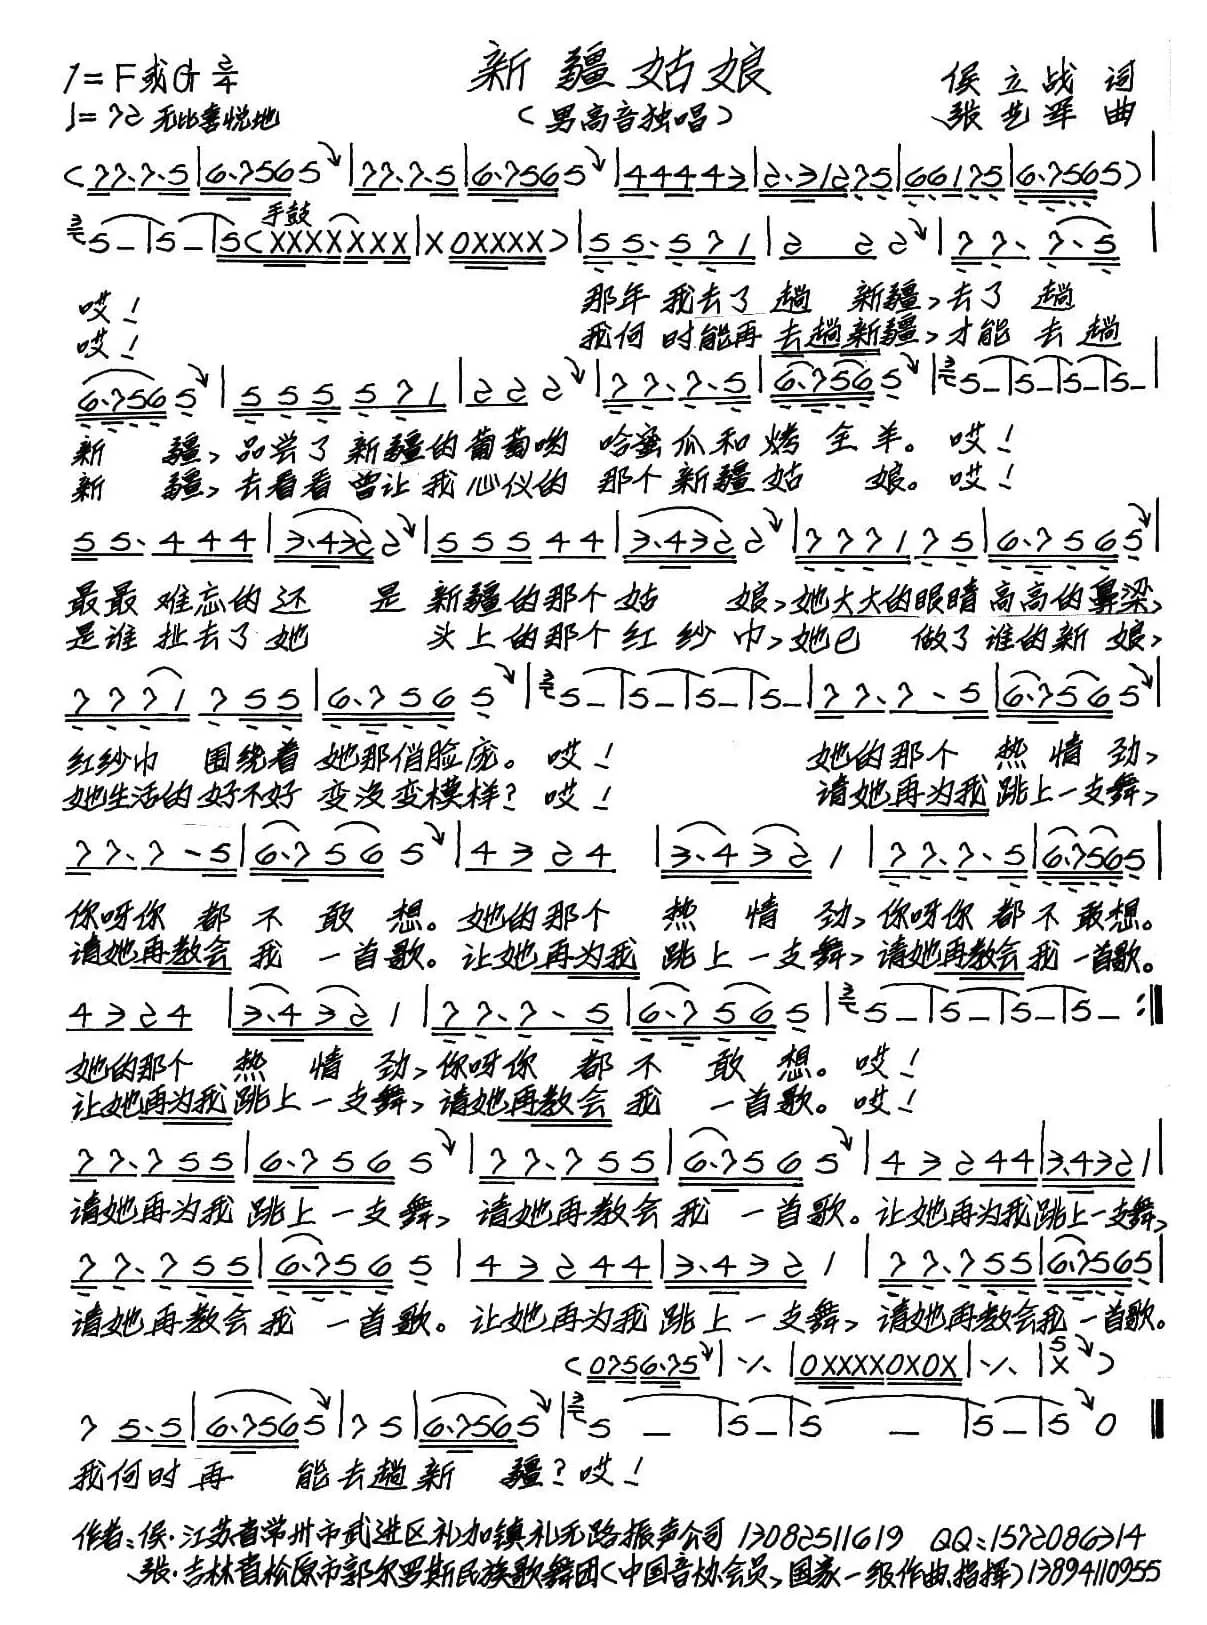 新疆姑娘
1=F或G 3/4
侯立战 词
♩=72 无比喜悦地
（男高音独唱）
张艺军 曲
(77·7·5|6·7565|77·7·5|6·7565|44443|2·31275|66175|6·7565)|
5–|5–|5(XXXXXXX|X0XXXX)|55·571|2 22|77·7·5|
手鼓
哎！ 那年我去了趟 新疆，去了 趟
哎！ 我何时能再去趟新疆，才能 去趟
6·7565|555571|222|77·7·5|6·7565|5–|5–|5–|5–|
新 疆，品尝了新疆的葡萄哟 哈蜜瓜和烤全羊。哎！
新 疆，去看看曾让我心仪的 那个新疆姑 娘。哎！
55·444|3·4322|55544|3·4322|777175|6·7565|
最最难忘的还 是新疆的那个姑 娘，她大大的眼睛高高的鼻梁，
是谁扯去了她 头上的那个红纱巾，她已 做了谁的新娘，
7771755|6·7565|5–|5–|5–|5–|77·7·5|6·7565|
红纱巾 围绕着她那俏脸庞。哎！ 她的那个 热情劲，
她生活的好不好 变没变模样？哎！ 请她再为我跳上一支舞，
77·7·5|6·7565|4324|3·4321|77·7·5|6·7565|
你呀你都不敢想。她的那个 热情劲，你呀你都不敢想。
请她再教会我 一首歌。让她再为我 跳上一支舞，请她再教会我一首歌。
4324|3·4321|77·7·5|6·7565|5–|5–|5–|5–:‖
她的那个 热情劲，你呀你 都不敢想。哎！
让她再为我跳上一支舞，请她再教会我 一首歌。哎！
77·755|6·7565|77·755|6·7565|43244|3·4321|
请她再为我 跳上一支舞，请她再教会我 一首歌。让她再为我跳上一支舞，
77·755|6·7565|43244|3·4321|77·755|6·7565|
请她再教会我 一首歌。让她再为我跳上一支舞，请她再教会我一首歌。
(0756·75|·/·|0XXXX0X0X|·/·|X)
75·5|6·7565|75|6·7565|5–|5–|5–|5–|5 0‖
我何时再 能去趟新 疆？哎！
作者：侯·江苏省常州市武进区礼加镇礼无路振声公司 13082511619 QQ：1572086314
张·吉林省松原市郭尔罗斯民族歌舞团（中国音协会员，国家一级作曲、指挥）13894110955